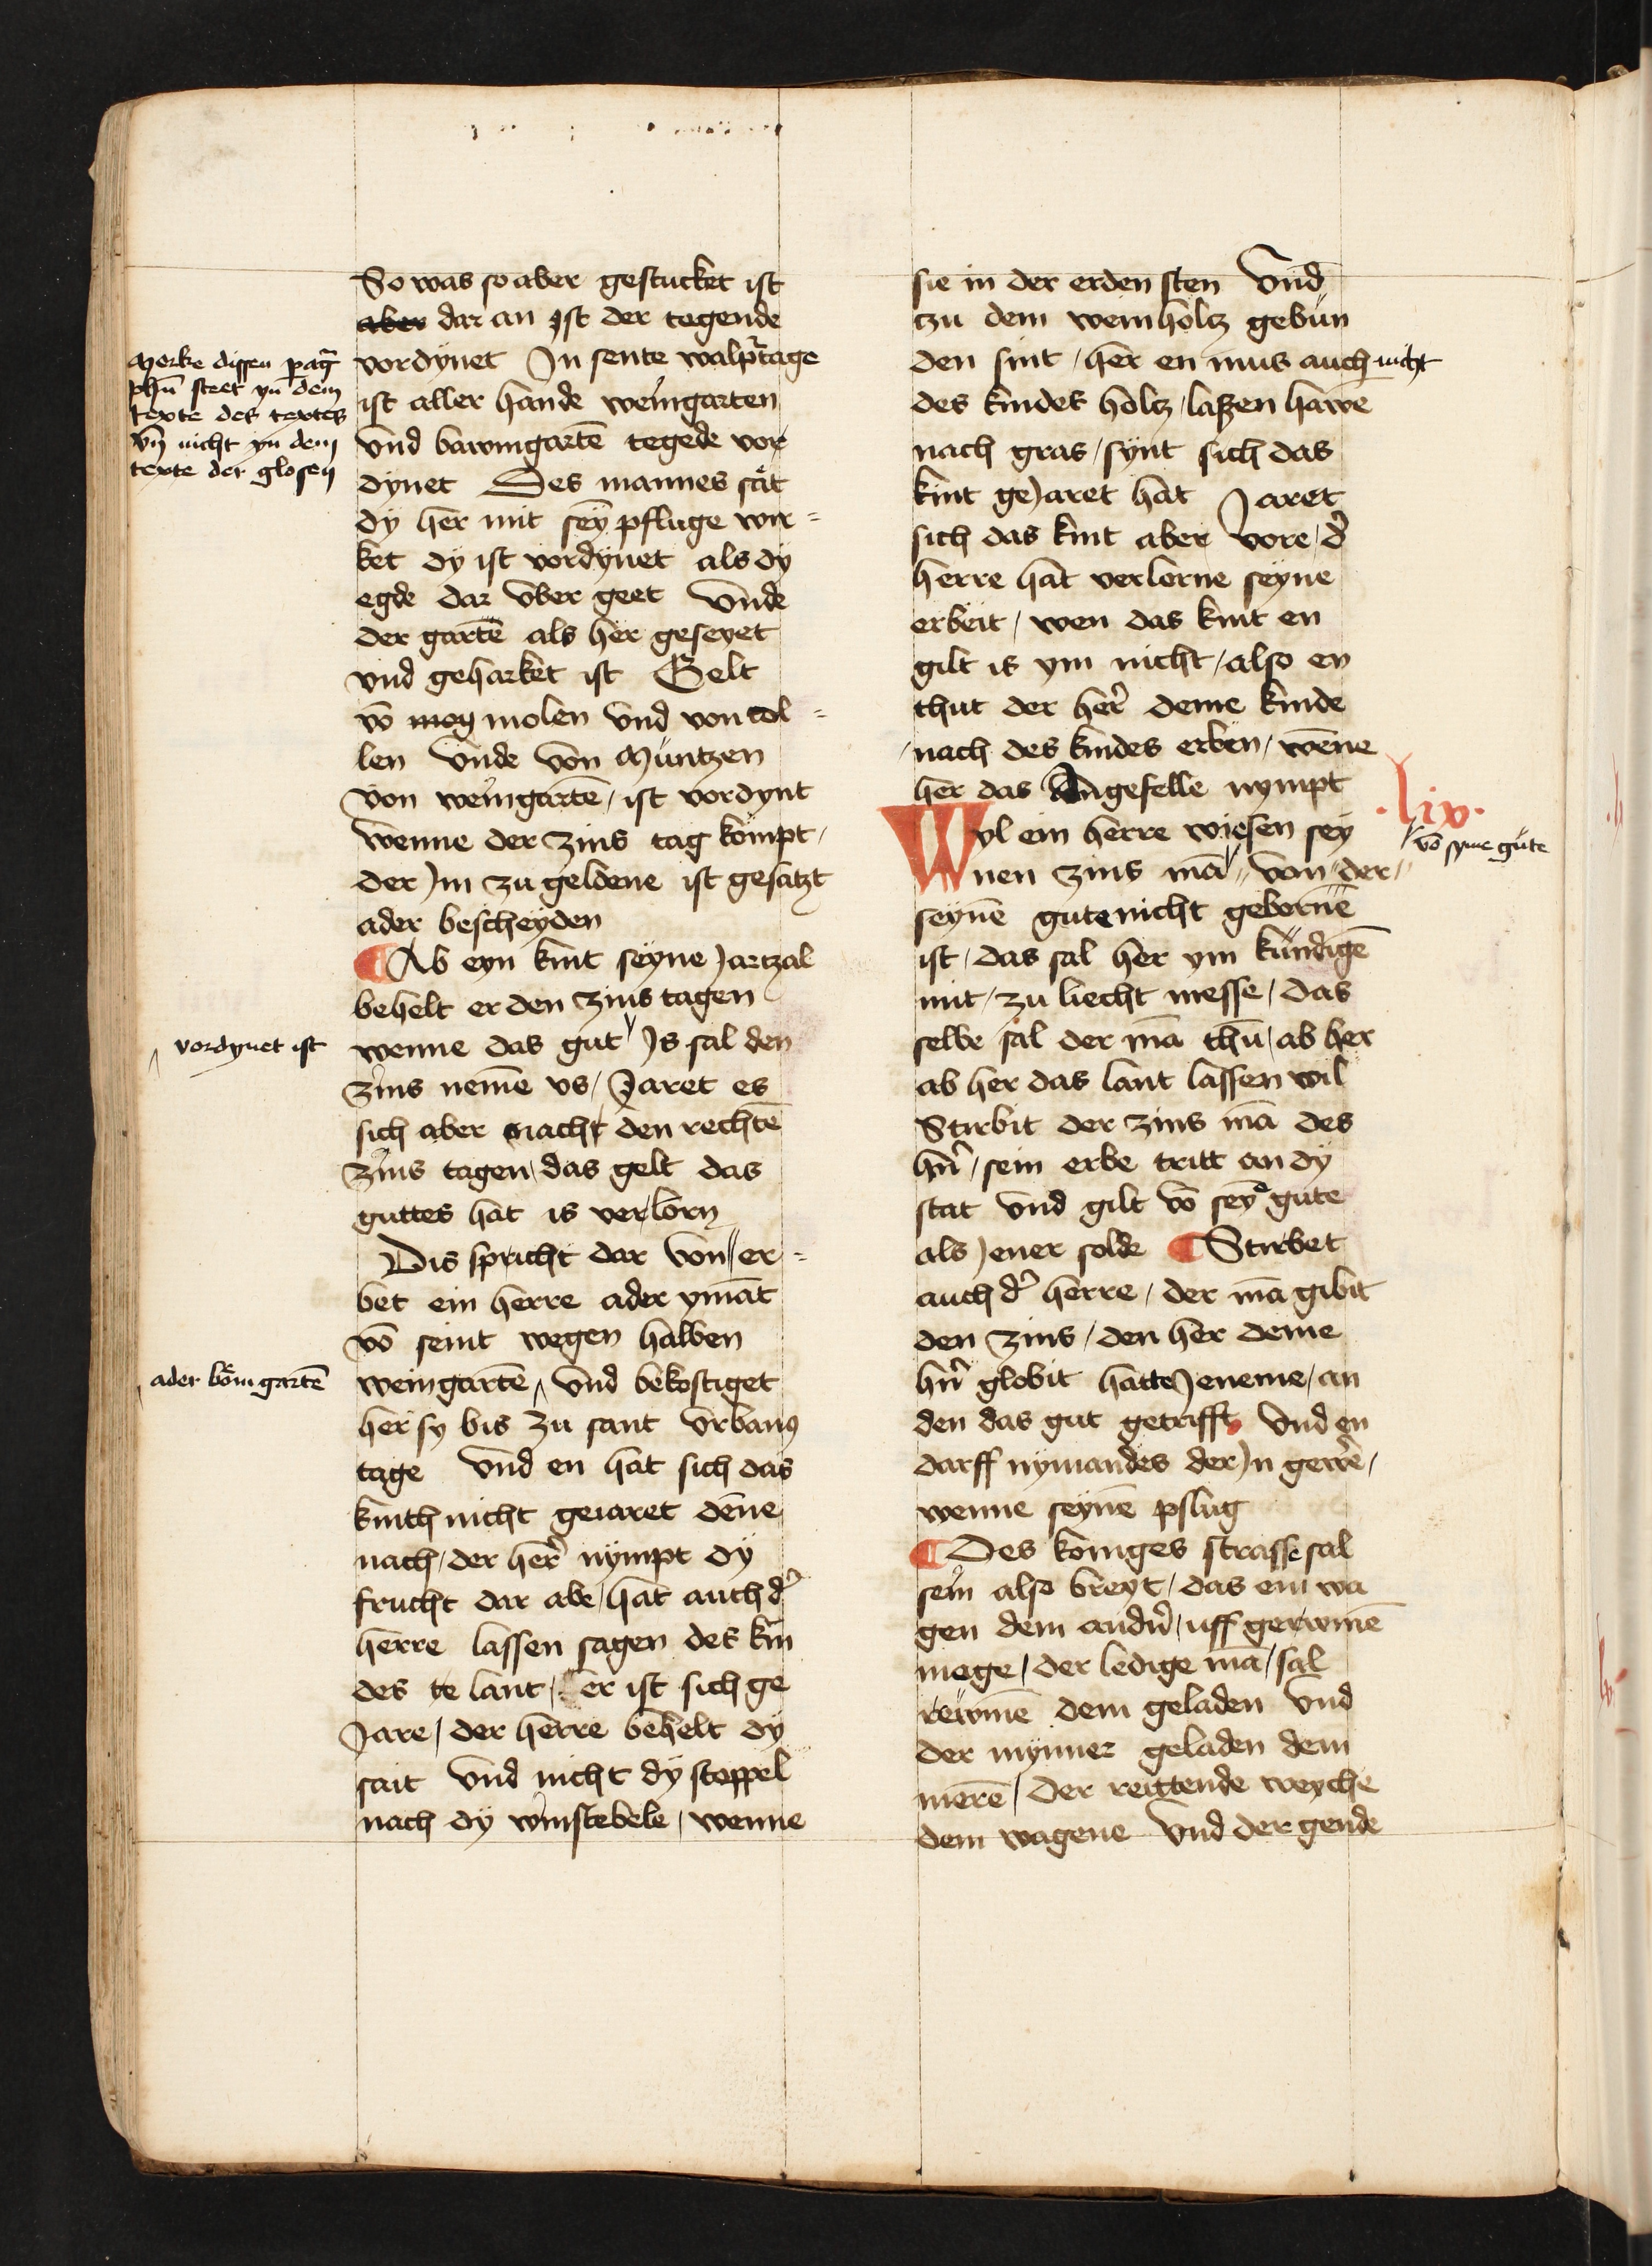 So was so aber gestucket ist
aber dar an ist der tegende
vordÿnet Jn sente walpr̃tage
ist aller hande weingarten
vnd bawmgartē tegede vor
dynet Des mannes sat
dÿ her mit seȳ pfluge wir=
ket dÿ ist vordÿnet als dÿ
egde dar vber geet vnde
der gartē als her geseyet
vnd geharket ist Gelt
vō moy molen vnd von tol=
len vnde von Müntzen
von weingartē / ist vordynt
wenne der zins tag kompt /
der Jm zu geldene ist gesatzt
ader bescheÿden
¶ Ab eyn kint seyne Jartzal
behelt er den zins tagen
wenne das gut Js sal den
zins nemē vs / Jaret es
sich aber nach den rechtē
zins tagen / das gelt das
guttes hat is verlorn
Dis spricht dar von // er=
bet ein herre ader ymāt
vō seint wegen halben
weingartē vnd bekostiget
her sy bis zu sant vrbanꝰ
tage vnd en hat sich das
kinth nicht geiaret dēne
nach / der her̉ nÿmpt dÿ
frucht dar abe / hat auch d̉
herre lassen sagen des kin
des te lant / er ist sich ge
Jare / der herre behelt dÿ
sait vnd nicht dÿ stoppel
nach dÿ winstebele / wenne
Merke dissen parag̃
phū steet yn dem
texte des textes
vn̄ nicht yn dem
texte der glosen
vordynet ist
ader bömgartē
sie in der erden sten vnd
tzu dem weinholtz gebun
den sint / her en mus auch nicht
des kindes holtz / laßen hawe
nach gras / sÿnt sich das
kint geJaret hat Jaret
sich das kint aber vore / d̉
herre hat verlorne seyne
erbeit / wen das kint en
gilt is ym nicht / also en
thut der her̉ deme kinde
nach des kindes erben / wēne
her das Angefelle nympt
·lix·
Wyl ein herre wiesen sey
nen zins mā // von der //
vō syme güte
seynē gute nicht gebornē
ist / das sal her ym kündigē
mit / zu liecht messe / das
selbe sal der mā thū / ab her
ab her das lant lassen wil
Stirbit der zins mā des
hn̉ / sein erbe tritt an dÿ
stat vnd gilt vō seyͤ gute
als Jener solde ¶ Stirbet
auch d̉ herre / der mā gibit
den zins / den her deme
hn̉ globit hatte Jeneme / an
den das gut getrifft vnd en
darff nymandes der Jn gewē̉ /
wenne seynē pflug
¶ Des koniges strasse sal
sein also breyt / das ein wa
gen dem andn̉ / uff gerwmē
mege / der ledige mā / sal
rewmē dem geladen vnd
der mynner geladen dem
merē / Der reittende weyche
dem wagene vnd der gende